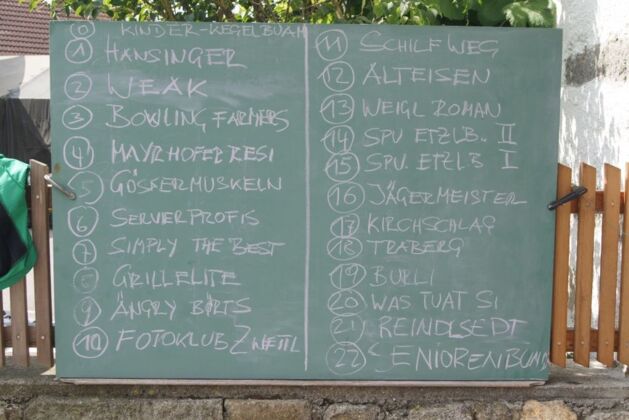 0 KINDER-KEGELBUAM
1 HANSINGER
2 WEAK
3 BOWLING FARMERS
4 MAYRHOFER RESI
5 GÖSSERMUSKELN
6 SERVIERPROFIS
7 SIMPLY THE BEST
8 GRILLELITE
9 ÄNGRY BÖRTS
10 FOTOKLUB ZWETTL
11 SCHILFWEG
12 ALTEISEN
13 WEIGL ROMAN
14 SPU ETZLB. II
15 SPU. ETZLB I
16 JÄGERMEISTER
17 KIRCHSCHLAG
18 TRABERG
19 BURLI
20 WAS TUAT SI
21 REINDLSEDT
22 SENIORENBUND